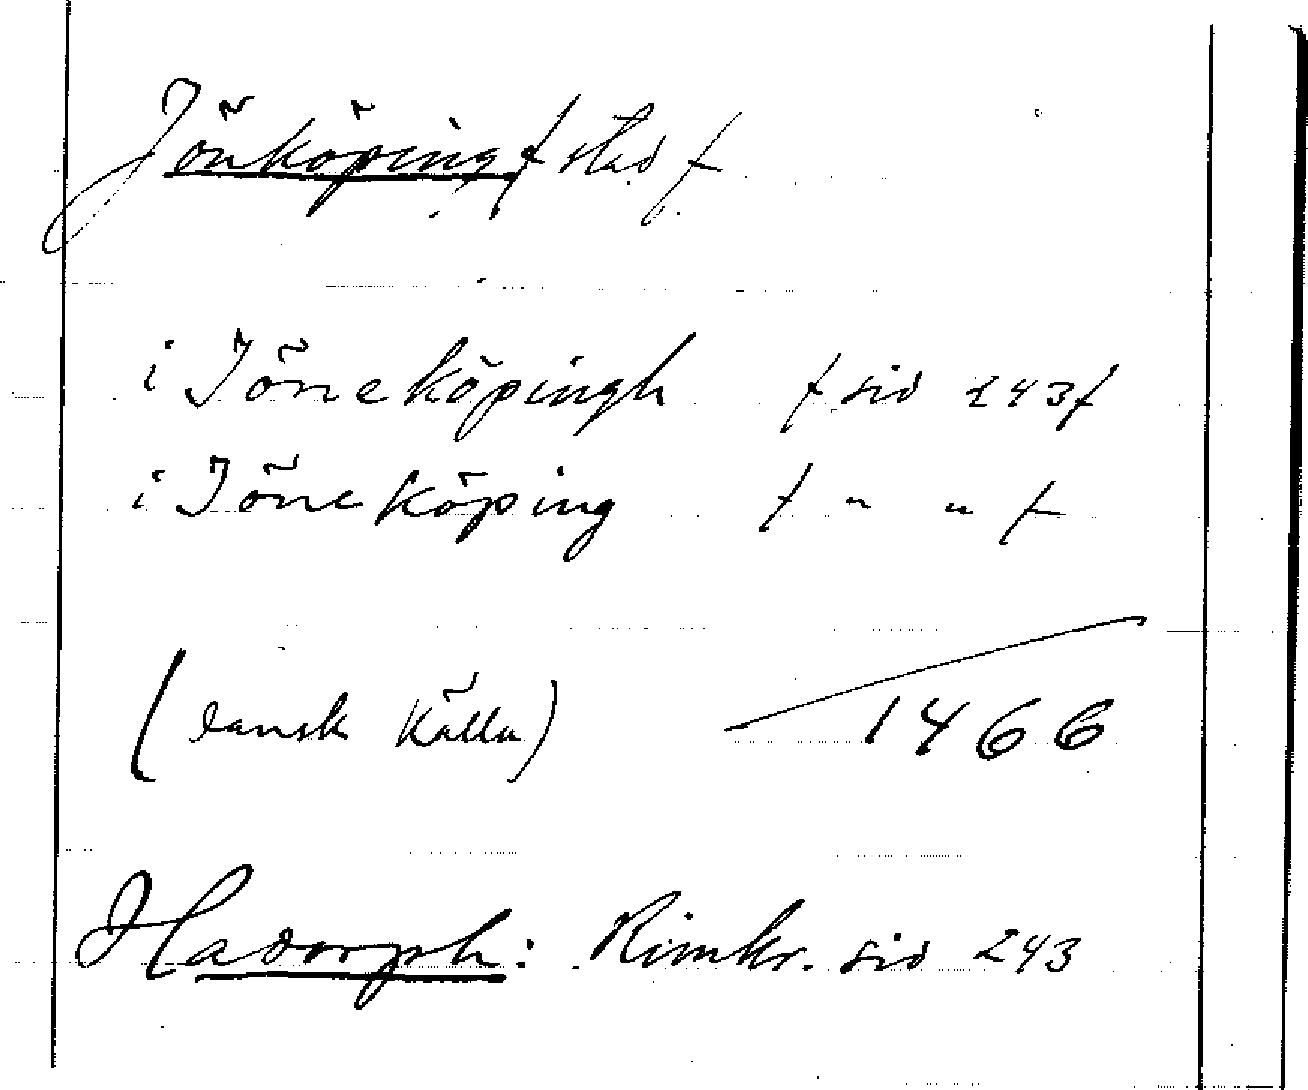 Jönköping / stad /
i Jöneköpingh / sid 243 /
i Jöneköping / " " /
(dansk källa) 1466
Hadorph: Rimkr. sid 243